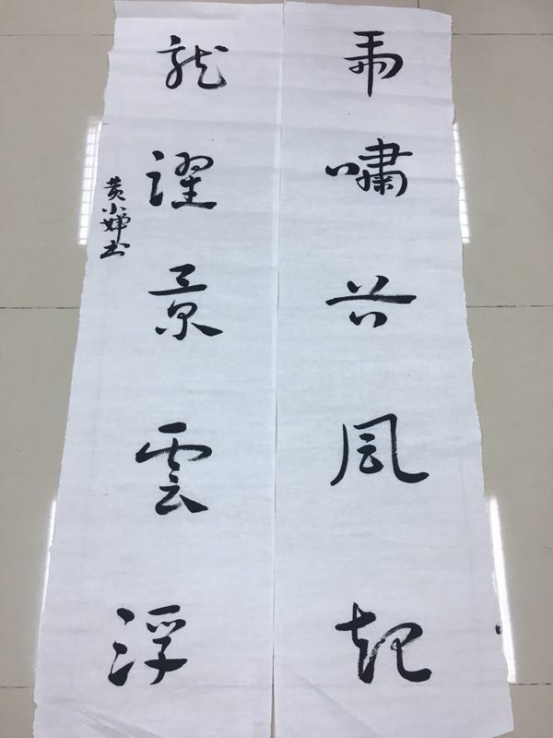 虎嘯谷風起
龍躍景雲浮
黄小娣书